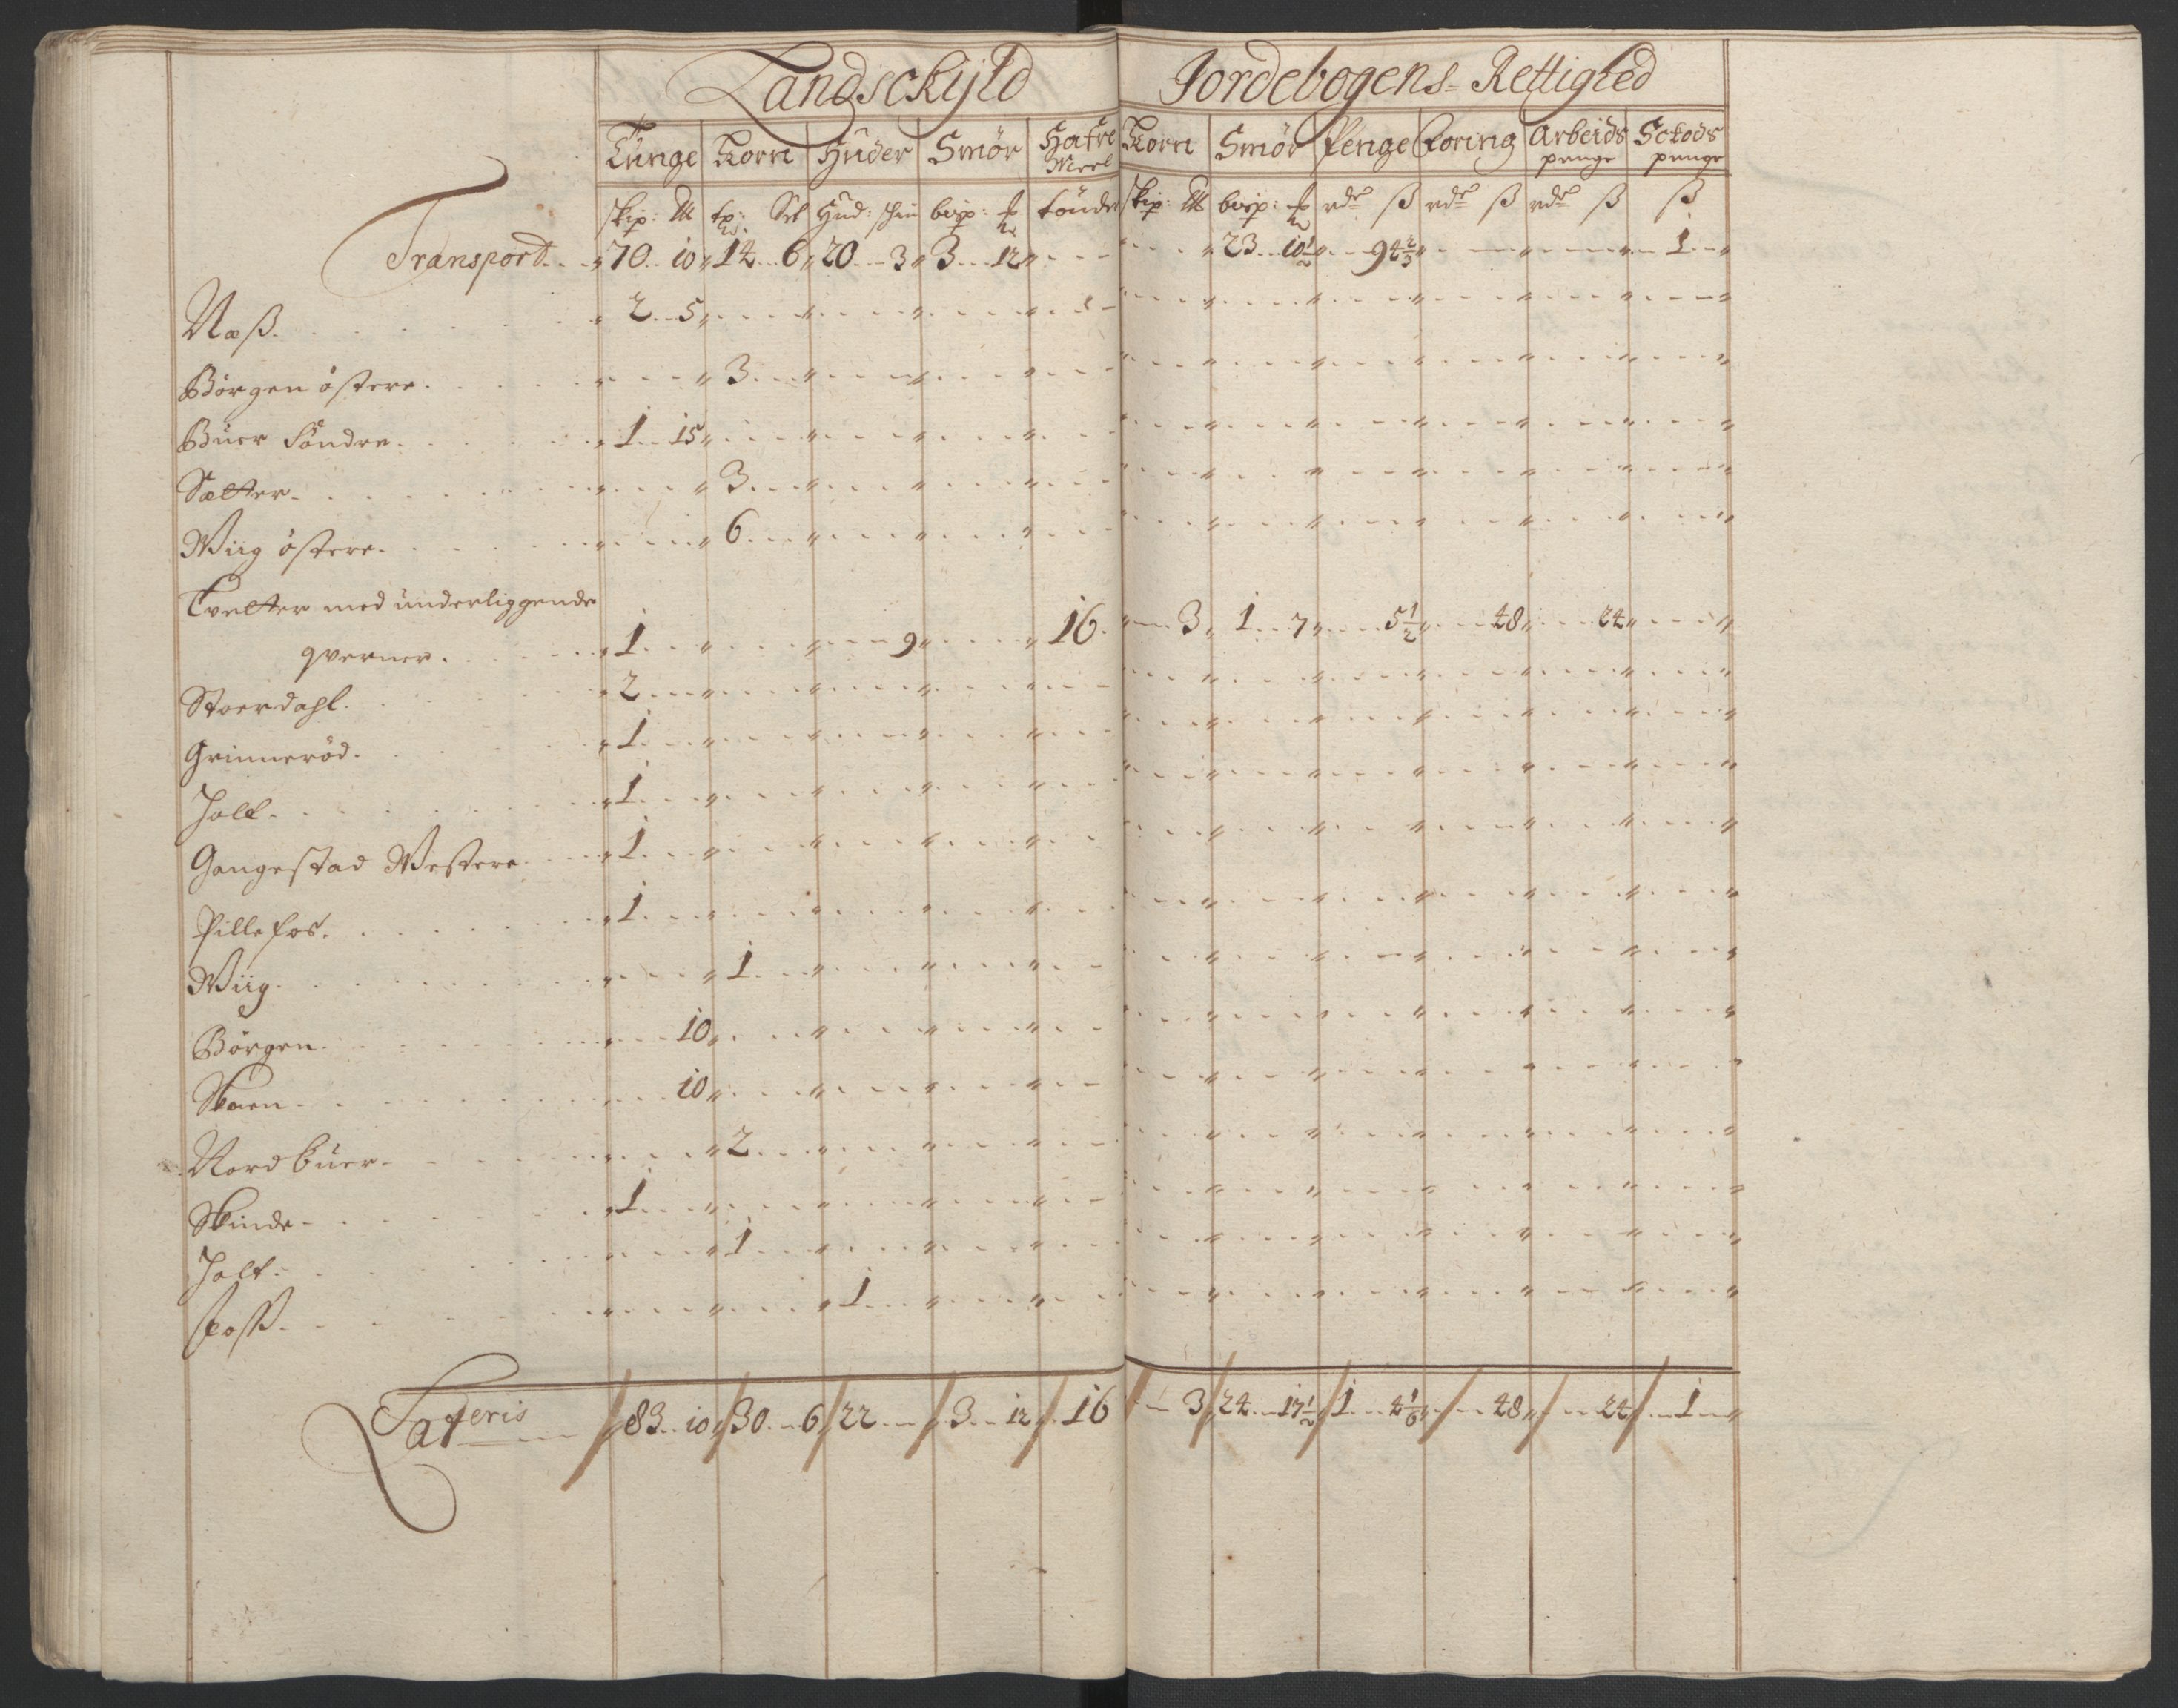 Landsckyld Jordebogens Rettighed
Tunge Korn Huder Smör Hafre Meel Korn Smör Penge Foring Arbeids penge Sckods penge
skip: tp: Set Hud: skin bvsp: tönde skip: bvsp: rdr ß rdr ß rdr ß ß
Transport 70 10 14 6 20 3 3 12 23 10½ 94⅔ 1
Næß 2 5
Börgen östere 3
Buer söndre 1 15
Sætter 3
Wiig östere 6
Tvetter med underliggende
qverner 1 9 16 3 1 7 5½ 48 24
Stoerdahl 2
Grimeröd 1
Holt 1
Gangestad Westere 1
Pillefos 1
Wiig 1
Börgen 10
Skaen 10
Nordbuer 2
Skinde 1
Holt 1
Foss 1
Lateris 83 10 30 6 22 3 12 16 3 24 17½ 1 4⅙ 48 24 1